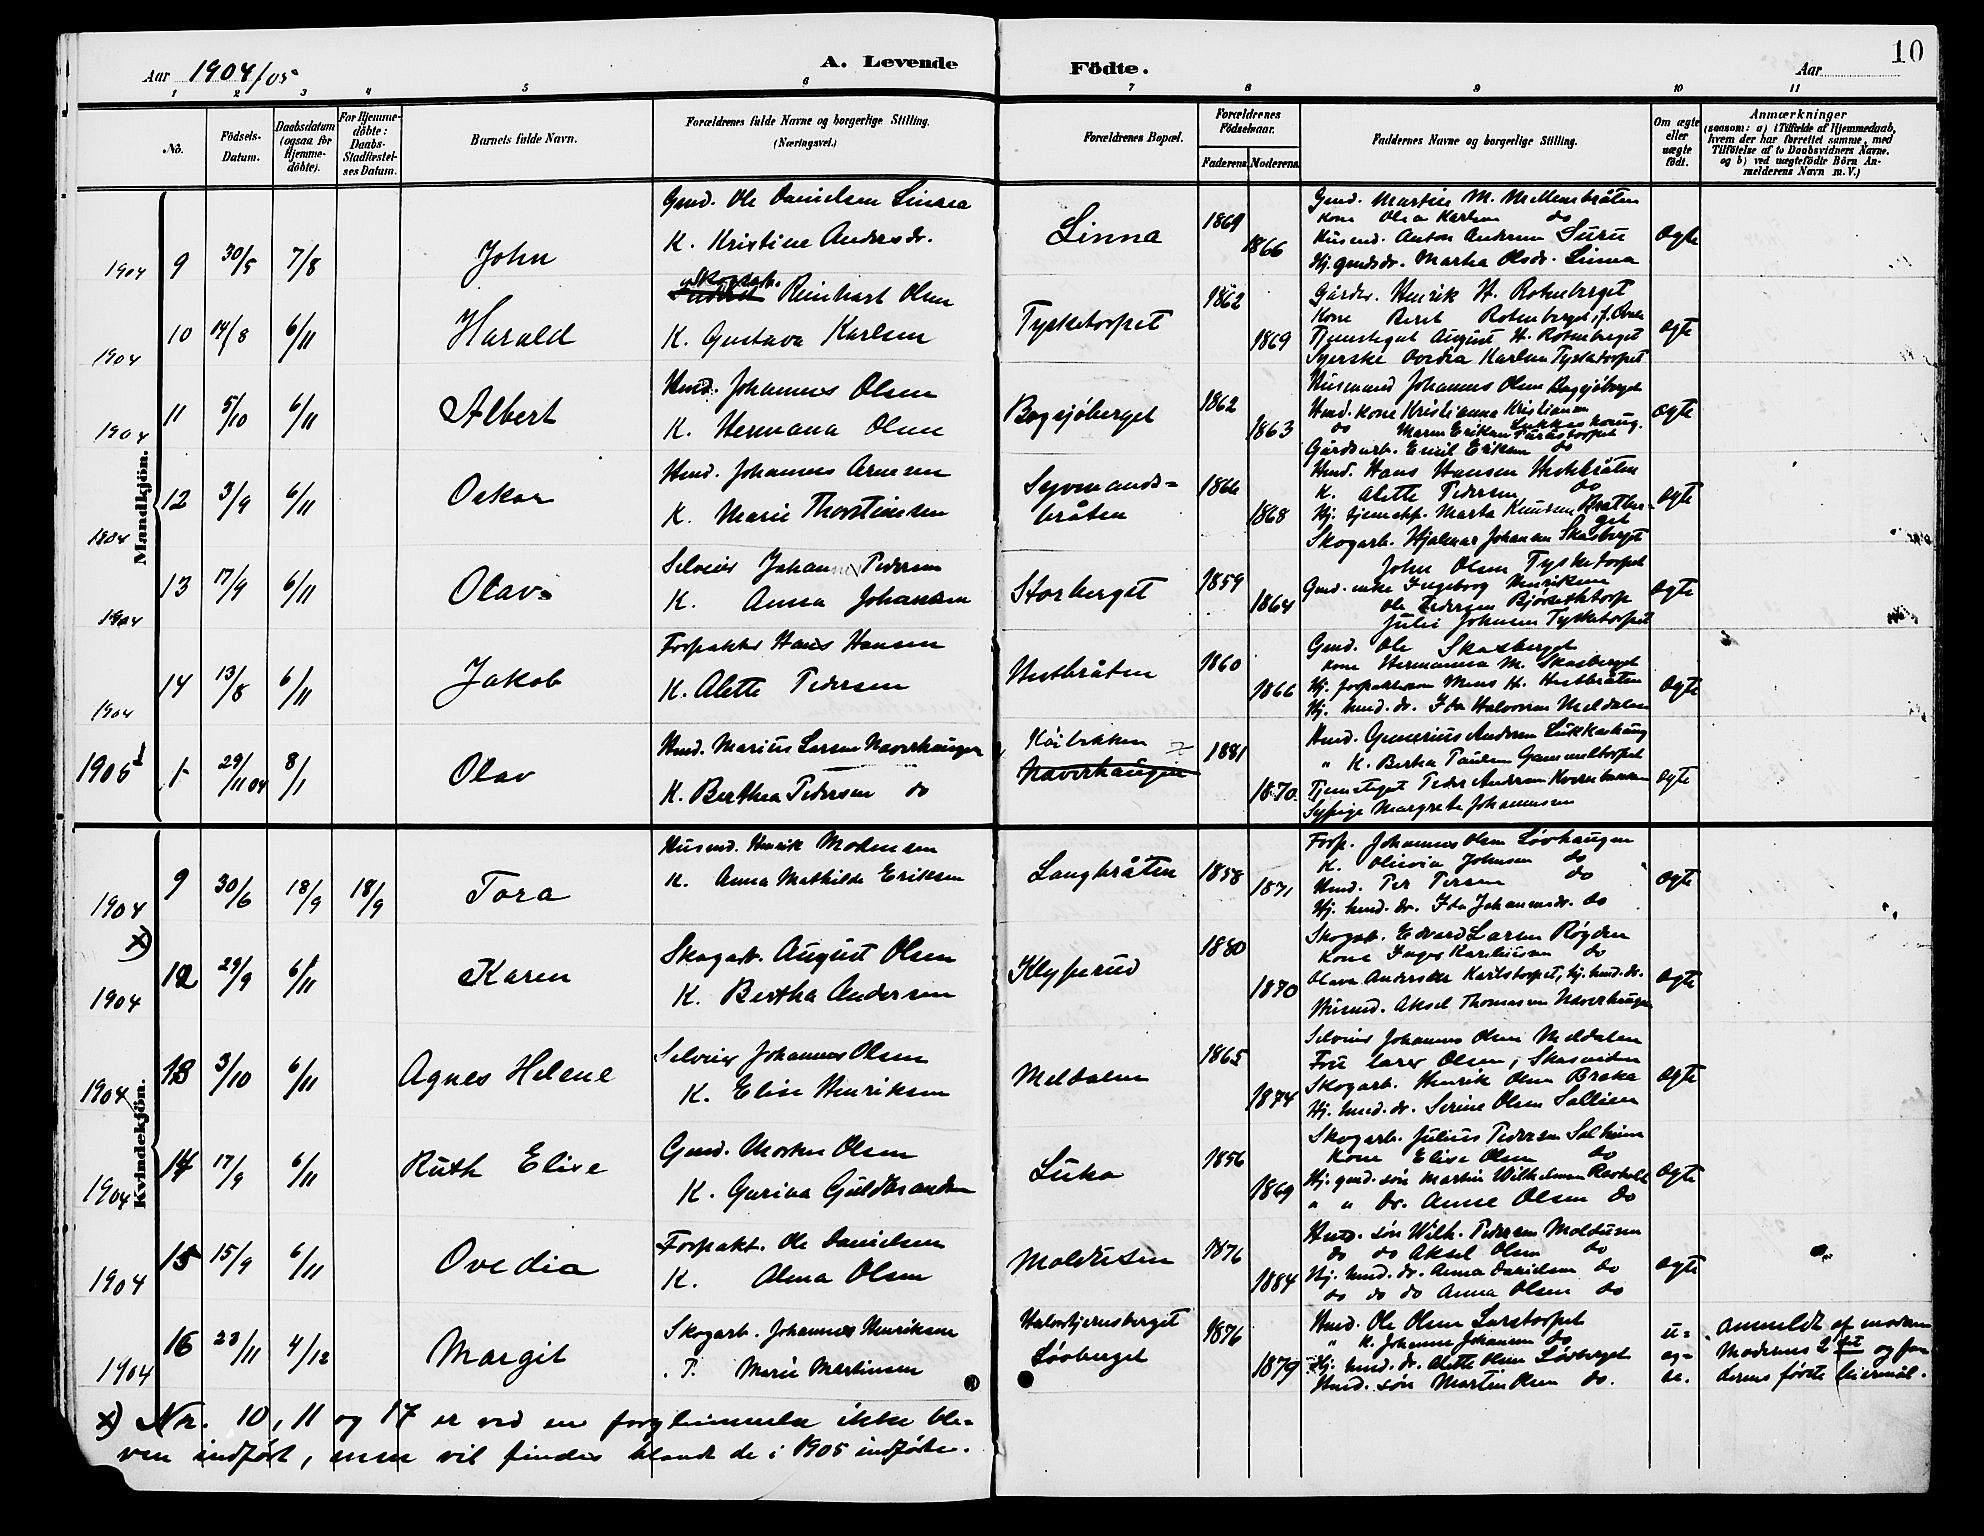 Aar 1904/05 A. Levende Födte. Aar 10
1 2 3 4 5 6 7 8 9 10 11
No. Födsels-Datum. Daabsdatum (ogsaa for Hjemme-döbte). For Hjemme-döbte: Daabs-Stadfæstel-ses Datum. Barnets fulde Navn. Forældrenes fulde Navne og borgerlige Stilling. (Næringsvei.) Forældrenes Bopæl. Forældrenes Födselsaar. Faderens. Moderens. Faddernes Navne og borgerlige Stilling. Om ægte eller uægte födt. Anmærkninger (saasom: a) i Tilfælde af Hjemmedaab, hvem der har forrettet samme, med Tilföielse af to Daabsvidners Navne. og b) ved uægtefödte Börn An-melderens Navn m. V.)
Mandkjön.
Gmd. Ole Danielsen Linna
K. Kristine Andersdr.
1904 9 30/5 7/8 John Linna 1869 1866 ægte
Gmd. Martin M. Mellembråten
kone Olea Karlsen do
Husmd. Anton Andersen Suru
Hj. gmdsdr. Martha Olsdr. Linna
Skogsarb. Reinhart Olsen
K. Gustava Karlsen
1904 10 14/8 6/11 Harald Tysketorpet 1862 1869 ægte
Gårdbr. Henrik H. Rotenberget
Kone Beret Rotenberget
Tjenestegut August H. Rotenberget
Syerske Ovedia Karlsen Tysketorpet
Hmd. Johannes Olsen
K. Hermana Olsen
1904 11 5/10 6/11 Albert Bogsjöberget 1862 1863 ægte
Husmand Johannes Olsen Bogsjöberget
Hmd. kone Kristianna Kristiansen
do Maren Eriksen
Gårdsarb. Emil Eriksen do
Hmd. Johannes Arnesen
K. Marie Thorstensen
1904 12 3/9 6/11 Oskar Syvmands-bråten 1866 1868 ægte
Hmd. Hans Hansen Hestbråten
K. Alette Pedersen do
Hj. tjenestep. Marta Knutsen Bratber-get
Skogarb. Hjalmar Johansen Skasberget
Selveier Johan Pedersen
K. Anna Johansen
1904 13 17/9 6/11 Olav Storberget 1859 1864 ægte
John Olsen Tysketorpet
Gmd. enke Ingeborg Henriksen
Ole Pedersen
Julie Johnsen Tysketorpet
Forpakter Hans Hansen
K. Alette Pedersen
1904 14 13/8 6/11 Jakob Hestbråten 1860 1866 ægte
Gmd. Ole Skasberget
Kone Hermanna M. Skasberget
Hj. forpaktersøn Mons H. Hestbråten
Hj. hmd. dr. Ida Halvorsen Meldalen
Hmd. Marius Larsen Naverhaugen
K. Berthea Pedersen do
1905 1 29/11 04 8/1 Olav Naverhaugen 1881 1870 ægte
Hmd. Gunerius Andersen Lukkashaug
" K. Bertha Paulsen Gammeltorpet
Tjenestegut Peder Andersen Kvernbakken
Sypige Margrete Johannesen
Kvindekjön.
Husmd. Henrik Mortensen
K. Anna Mathilde Eriksen
1904 9 30/6 18/9 18/9 Tora Langbråten 1858 1871 ægte
Forp. Johannes Olsen Lövhaugen
K. Olivia Johnsen do
Hmd. Per Persen do
Hj. hmd. dr. Ida Johannesdr. do
Skogarb. August Olsen
K. Bertha Andersen
x) 1904 12 29/9 6/11 Karen Klyperud 1880 1870 ægte
Skogarb. Edvard Larsen Røgden
Kone Inger Karlsen do
Olava Andersdtr Karlstorpet, hj. hmd. dr.
Husmd. Aksel Thomasen Naverhaugen
Selveier Johannes Olsen
K. Elise Henriksen
1904 13 3/10 6/11 Agnes Helene Meldalen 1865 1874 ægte
Selveier Johannes Olsen Meldalen
Fru Lars Olsen, Skasenden
Skogarb. Henrik Olsen Braka
Hj. hmd. dr. Serine Olsen
Gmd. Morten Olsen
K. Gurina Guldbrandsen
1904 14 17/9 6/11 Ruth Elise 1856 1869 ægte
Skogarb. Julius Pedersen Solheim
Kone Elise Olsen do
Hj. gmd. søn Martin Wilhelmsen
" " Dr. Anne Olsen do
Forpakt. Ole Danielsen
K. Alma Olsen
1904 15 15/9 6/11 Ovedia Moldusen 1876 1884 ægte
Hmd. søn Wilh. Pedersen Moldusen
do do Aksel Olsen do
Hj. hmd. dr. Anna Danielsen do
do do do Anna Olsen do
Skogarb. Johannes Henriksen
P. Marie Martinsen
1904 16 23/11 4/12 Margit Halvortjernsberget Lövberget 1876 1879 u-æg-te.
Hmd. Ole Olsen Larstorpet
" K. Johanne Johansen do
Hj. hmd. dr. Alette Olsen Lövberget
Hmd. søn Martin Olsen do.
anmeldt af moderen
Moderens 2det og fa-
derens første leiermål.
x) No. 10, 11 og 17 er ved en forglemmelse ikke ble-
ven indført, men vil findes blandt de i 1905 indførte.